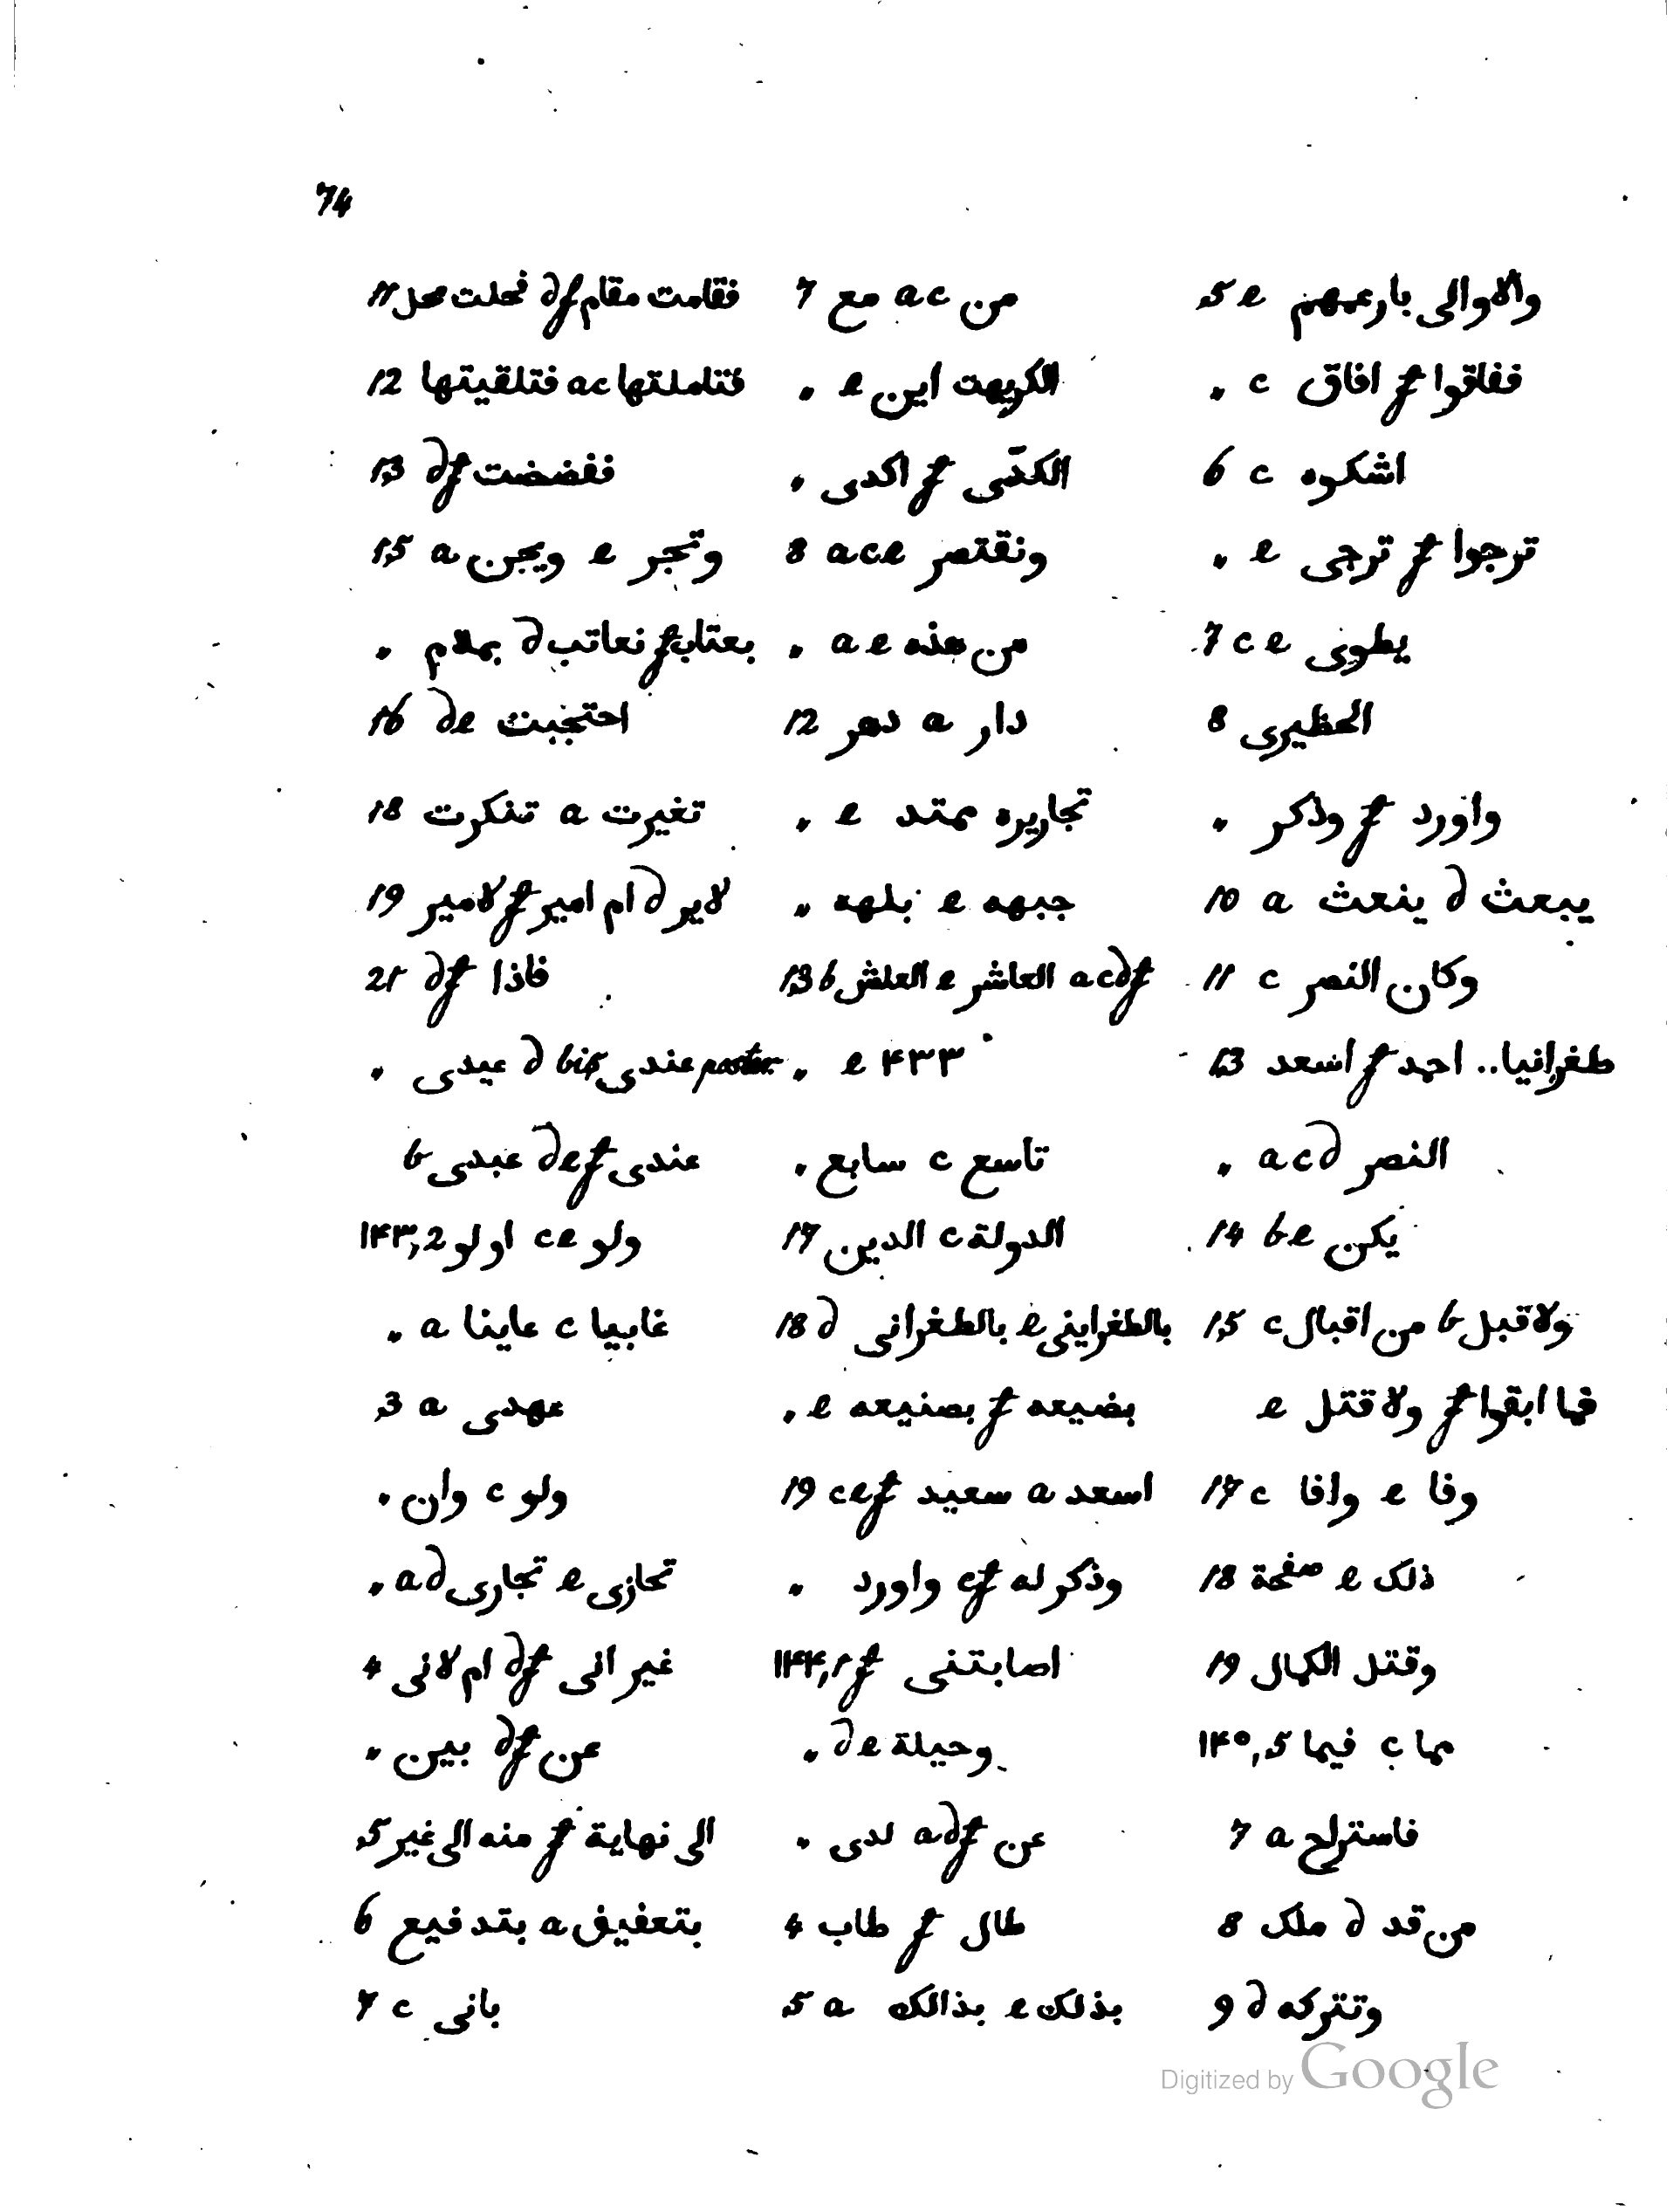 74
والاوالى بارعمهم e 5
ففاقوا f افاق c „
اشكوه c 6
ترجوا f ترجى e „
يطوى ce 7
الحظيرى 8
واورد f وذكر „
يبعث d ينعث a 10
وكان النصر c 11
طغرانيا.. احمد f اسعد 13
النصر acd „
يكن be 14
ولاقبل b من اقبال c 15
فما ابقوا f ولا قتل e
وفا e وافا c 17
ذلك e صفحة 18
وقتل الكمال 19
مما c فيما ۱۴۰,5
فاستراح a 7
من قد d ملك 8
وتتركه d 9
من ac مع 7
الكريهت اين e „
الكدّى f اكدى „
ونقتصر ace 8
من هذه ae „
دار a دهر 12
تجاريره ممتد e „
جبهه e بلهه „
acdf العاشر e العلش b 13
۴۳۳ e „
تاسع c سابع „
الدولة c الدين 17
بالطغراينى e بالطغرانى d 18
بضيعه f بصنيعه e „
اسعد a سعيد cef 19
وذكر له cf واورد „
اصابتنى f ۱۴۲,1
وحيلة de „
عن adf لدى „
طال f طاب 4
بذلك e بذالك a 5
فقامت مقام df فحلت محل 11
فتاملتها ac فتلقيتها 12
ففضضت df 13
وتجر e ويجرن a 15
بعتاب f نعاتب d بملام „
احتجبت de 16
تغيرت a تنكرت 18
لاير d ام امير f لامير 19
فاذا df 21
عندى poster. bis d عيدى „
عندى def عبدى b
ولو ce اولو ۱۴۳,2
غابيا c عاينا a „
عهدى a 3
ولو c وان „
تحازى e تجارى ad „
غير انى df ام لانى 4
عن df بين „
الى نهاية f منه الى غير 5
بتعفيف a بتدفيع 6
بانى c 7
Digitized by Google